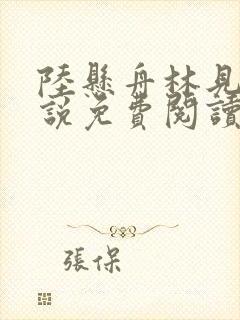 陸懸舟林見
說免費閱讀
張保